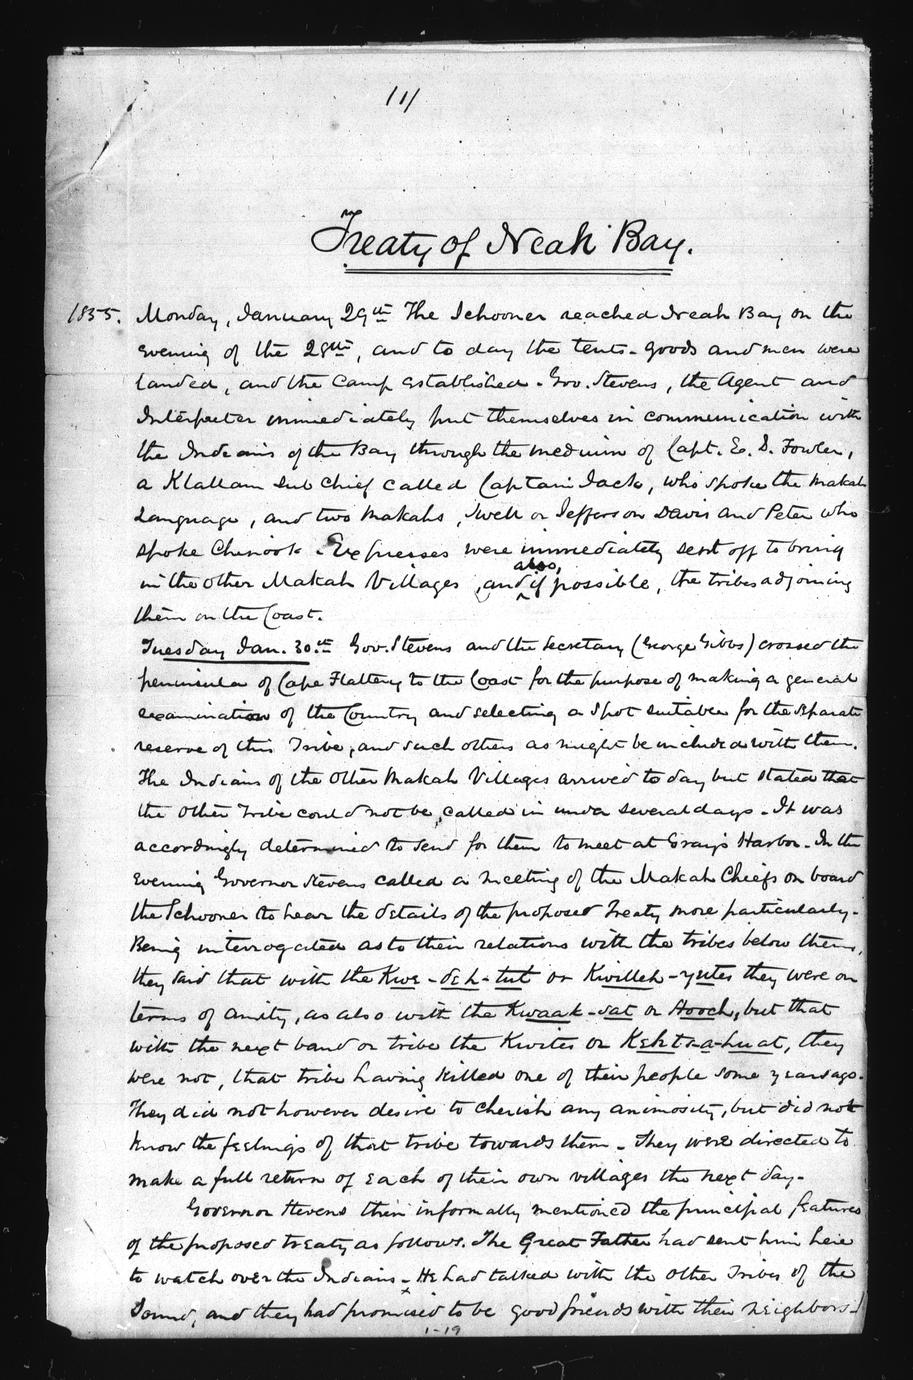 11/
Treaty of Neah Bay.
1855. Monday, January 29th The Schooner reached Neah Bay on the
evening of the 28th, and to day the tents - goods and men were
landed, and the camp established - Gov. Stevens, the Agent and
Interpreter immediately put themselves in communication with
the Indians of the Bay through the medium of Capt. E. S. Fowler,
a Klallam Sub Chief called Captain Jack, who spoke the Makah
Language, and two Makahs, Swell or Jefferson Davis and Peter who
spoke Chinook. Expresses were immediately sent off to bring
also,
in the other Makah Villages, and if possible, the tribes adjoining
them on the Coast.
Tuesday Jan. 30th Gov. Stevens and the Secretary (George Gibbs) crossed the
peninsula of Cape Flattery to the Coast for the purpose of making a general
examination of the Country and selecting a spot suitable for the separate
reserve of this Tribe, and such others as might be included with them.
The Indians of the other Makah Villages arrived to day but stated that
the other tribe could not be called in under several days - It was
accordingly determined to send for them to meet at Grays Harbor - In the
evening Governor Stevens called a meeting of the Makah Chiefs on board
the Schooner to hear the details of the proposed Treaty more particularly -
Being interrogated as to their relations with the tribes below them,
they said that with the Kwe-deh-tut or Kwilleh-yutes they were on
terms of amity, as also with the Kwaak-sat or Hooch, but that
with the next band or tribe the Kwites or Kehts-a-huat, they
were not, that tribe having killed one of their people some years ago -
They did not however desire to cherish any animosity, but did not
know the feelings of that tribe towards them - They were directed to
make a full return of each of their own villages the next day -
Governor Stevens then informally mentioned the principal features
of the proposed treaty as follows. The Great Father had sent him here
to watch over the Indians - He had talked with the other Tribes of the
Sound, and they had promised to be good friends with their neighbors -
1-19